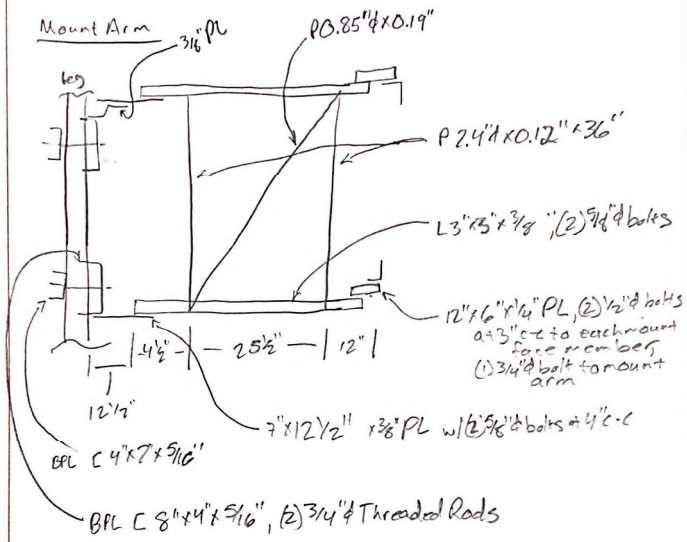 Mount Arm
3/16" PL
P0.85"ϕx0.19"
leg
P 2.4"ϕx0.12"x36"
L3"x3"x3/8", (2) 5/8"ϕ bolts
12"x6"x1/4" PL, (2) 1/2"ϕ bolts
at 3" c-c to each mount
face member,
(1) 3/4"ϕ bolt to mount
arm
4½" 25½" 12"
12½"
7"x12 1/2" x3/8" PL w/(2) 5/8"ϕ bolts at 4" c-c
BPL C 4"x7"x5/16"
BPL C 8"x4"x5/16", (2) 3/4"ϕ Threaded Rods